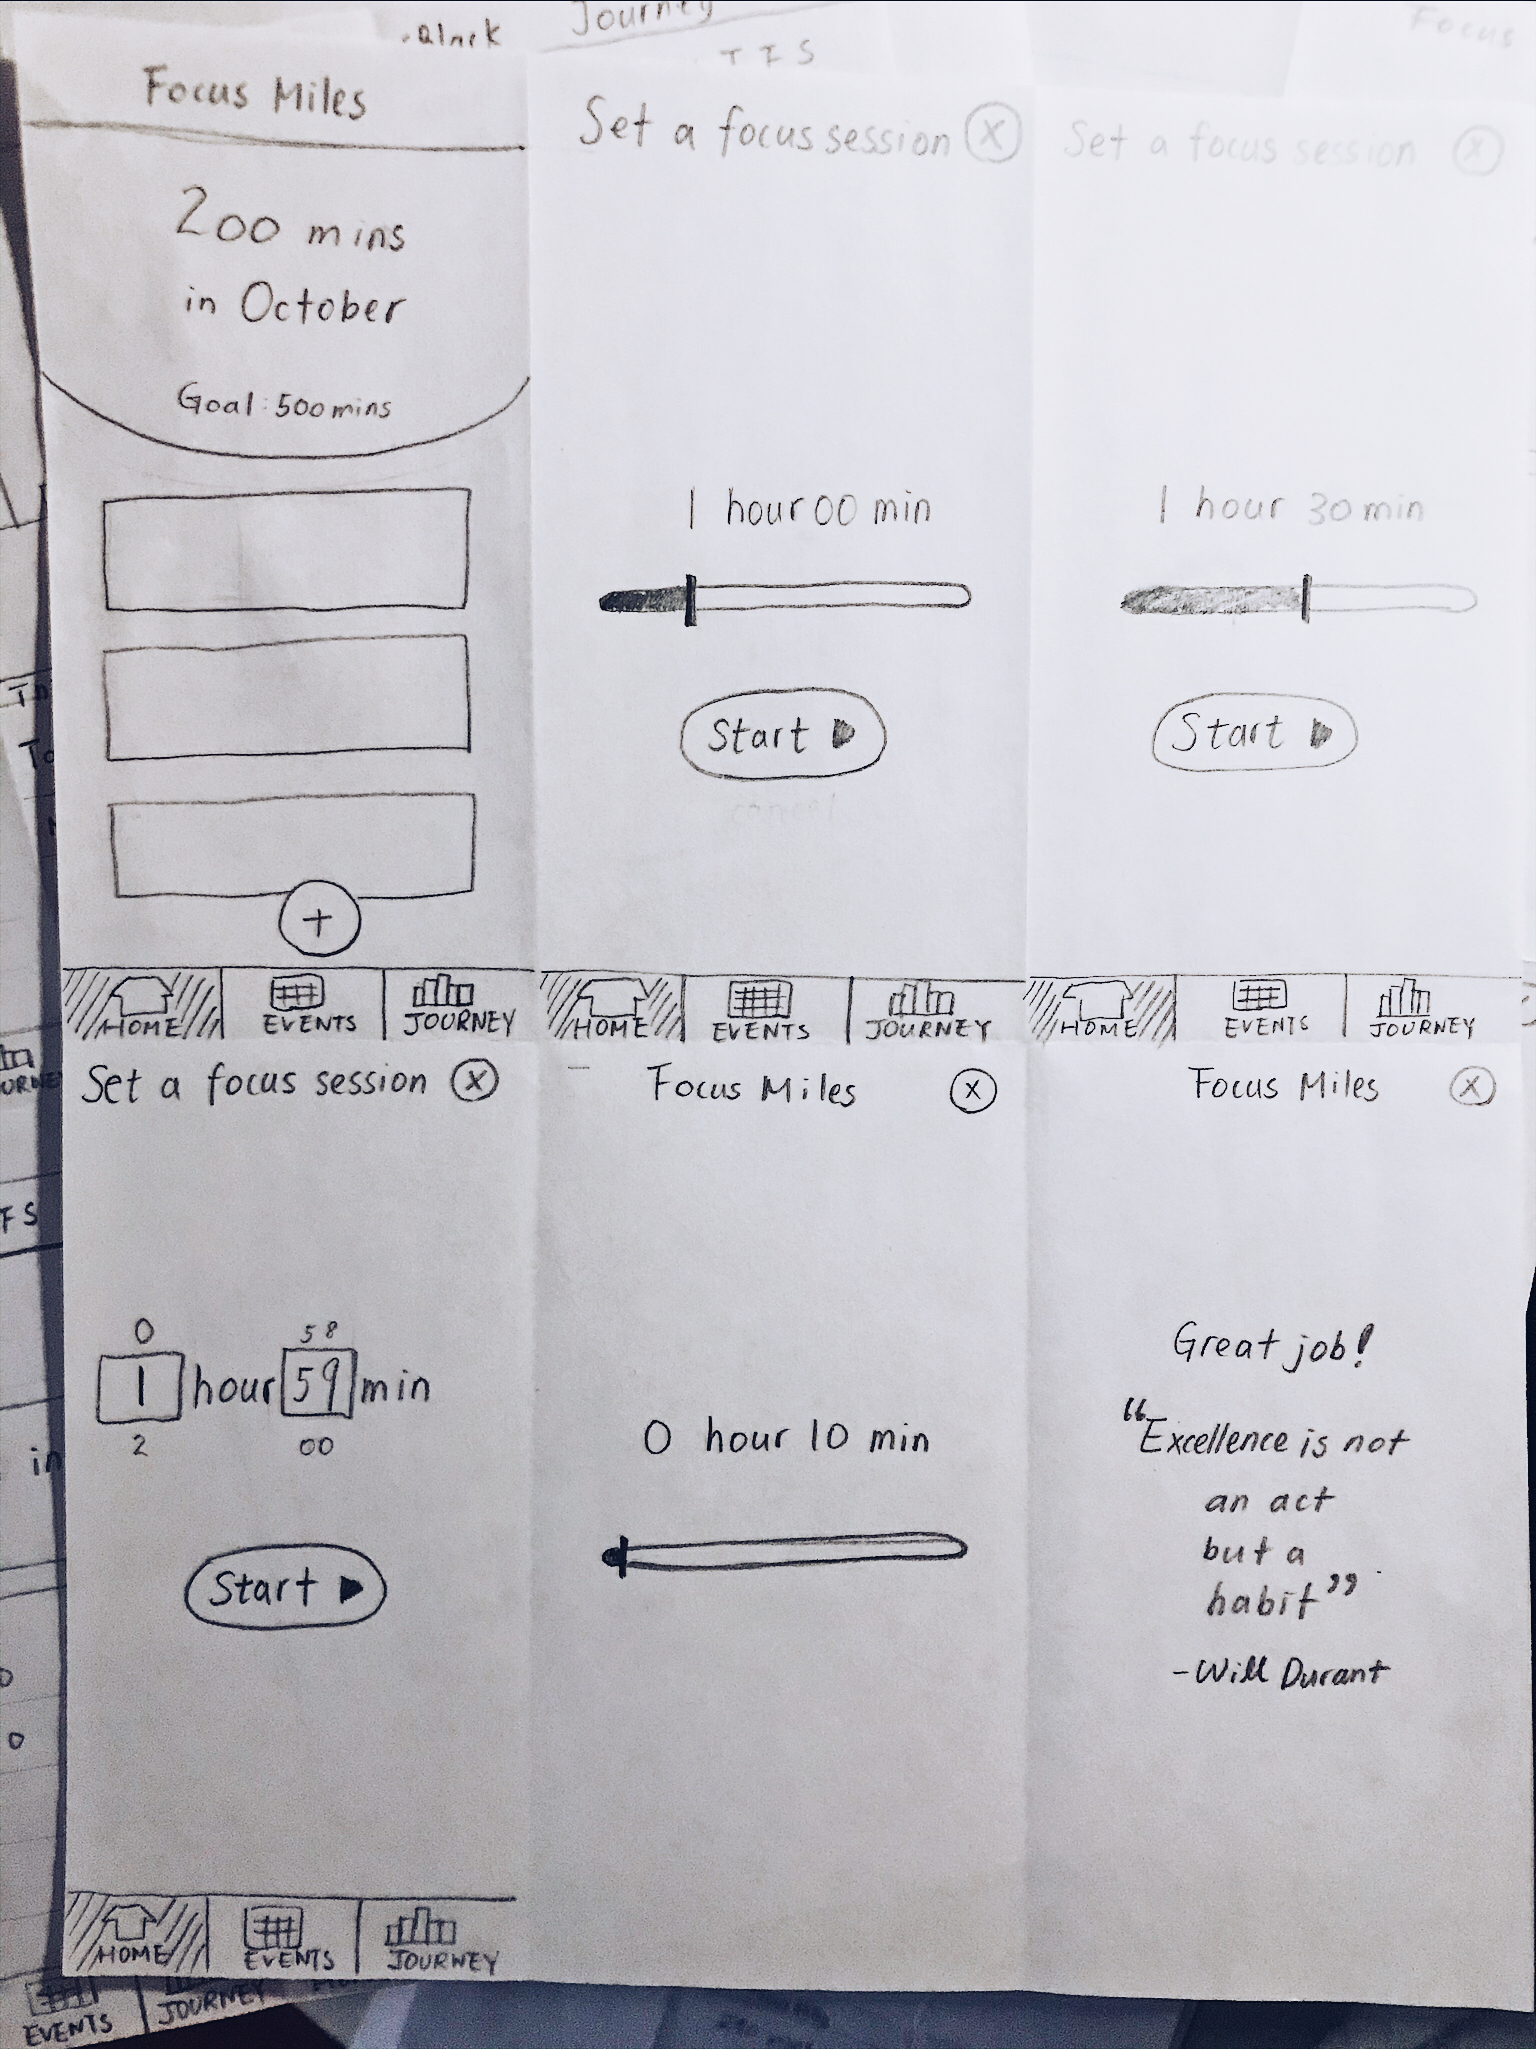 Journey
T F S
Focus
Focus Miles
200 mins
in October
Goal: 500mins
+
HOME EVENTS JOURNEY
Set a focus session X
1 hour 00 min
Start
cancel
HOME EVENTS JOURNEY
Set a focus session X
1 hour 30 min
Start
HOME EVENTS JOURNEY
Set a focus session X
0 58
1 hour 59 min
2 00
Start
HOME EVENTS JOURNEY
Focus Miles X
0 hour 10 min
Focus Miles X
Great job!
“Excellence is not
an act
but a
habit”
-Will Durant
F S
in
EVENTS JOURNEY